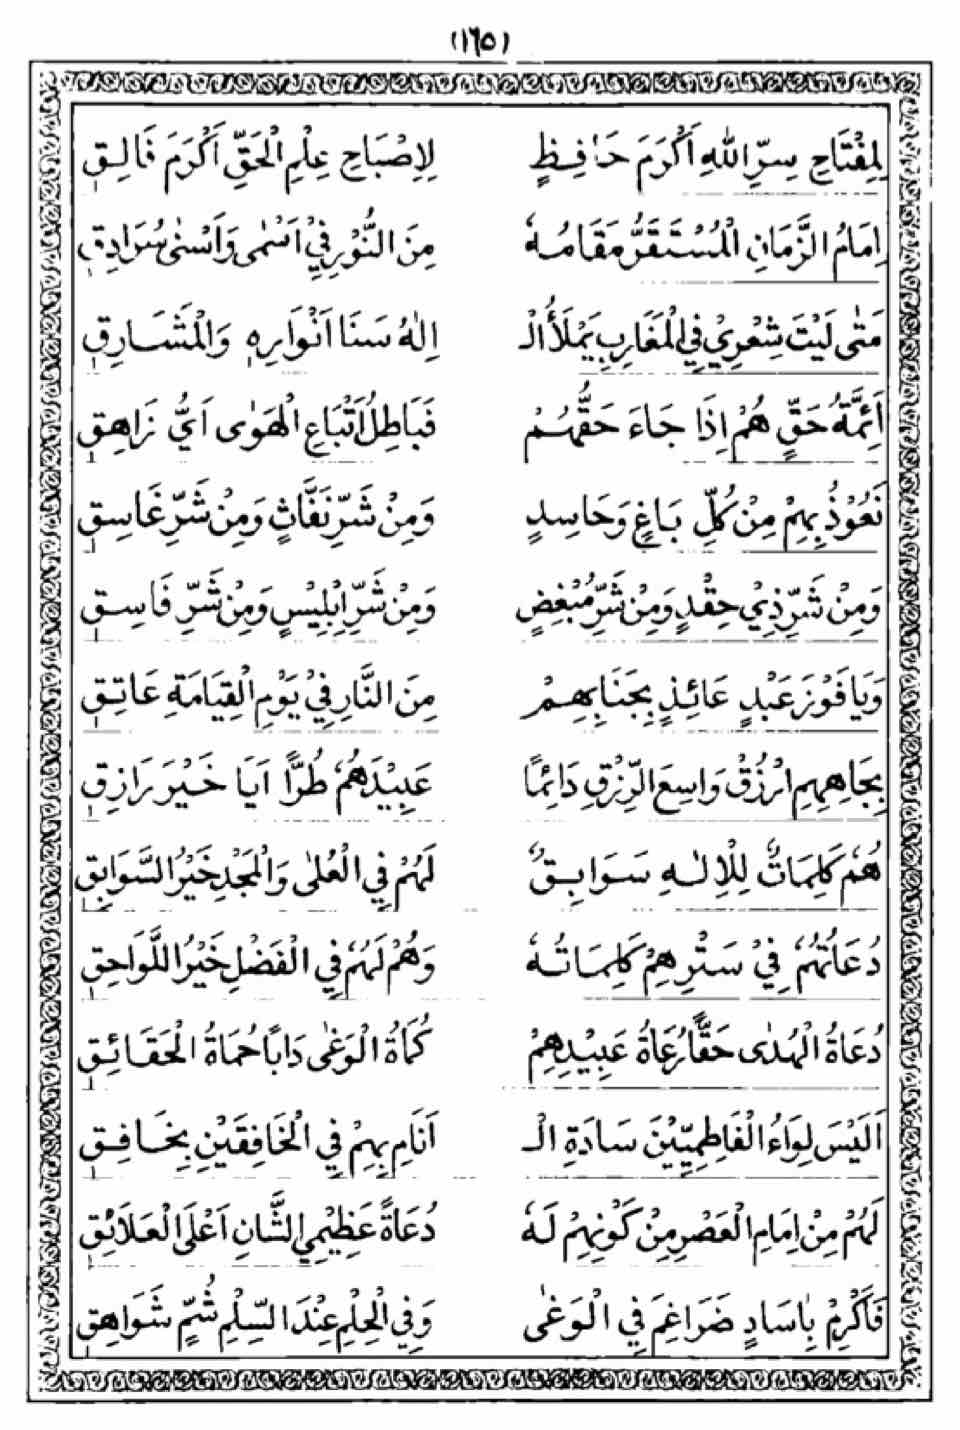 (١٦٥)
لِمِفْتَاحِ سِرِّ اللهِ اَكْرَمَ حَافِظٍ لِاِصْبَاحِ عِلْمِ الْحَقِّ اَكْرَمَ فَالِقِ
اِمَامُ الزَّمَانِ الْمُسْتَقَرُّ مَقَامُهٗ مِنَ النُّوْرِ فِيْ اَسْمٰى وَاَسْنٰى سُرَادِقِ
مَتٰى لَيْتَ شِعْرِيْ فِي الْمَغَارِبِ يَمْلَأُ الْـ اِلٰهُ سَنَا اَنْوَارِهٖ وَالْمَشَارِقِ
اَئِمَّةُ حَقٍّ هُمْ اِذَا جَاءَ حَقُّهُمْ فَبَاطِلُ اَتْبَاعِ الْهَوٰى اَيُّ زَاهِقِ
نَعُوْذُ بِهِمْ مِنْ كُلِّ بَاغٍ وَحَاسِدٍ وَمِنْ شَرِّ نَفَّاثٍ وَمِنْ شَرِّ غَاسِقِ
وَمِنْ شَرِّ ذِيْ حِقْدٍ وَمِنْ شَرِّ مُبْغِضٍ وَمِنْ شَرِّ اِبْلِيْسٍ وَمِنْ شَرِّ فَاسِقِ
وَيَا فَوْزَ عَبْدٍ عَائِذٍ بِجَنَابِهِمْ مِنَ النَّارِ فِيْ يَوْمِ الْقِيَامَةِ عَاتِقِ
بِجَاهِهِمِ ارْزُقْ وَاسِعَ الرِّزْقِ دَائِمًا عَبِيْدَهُمْ طُرًّا اَيَا خَيْرَ رَازِقِ
هُمْ كَلِمَاتٌ لِلْاِلٰهِ سَوَابِقٌ لَهُمْ فِي الْعُلٰى وَالْمَجْدِ خَيْرُ السَّوَابِقِ
دُعَاتُهُمْ فِيْ سَتْرِهِمْ كَلِمَاتُهٗ وَهُمْ لَهُمْ فِي الْفَضْلِ خَيْرُ اللَّوَاحِقِ
دُعَاةُ الْهُدٰى حَقًّا رُعَاةُ عَبِيْدِهِمْ كُمَاةُ الْوَغٰى دَابًا حُمَاةُ الْحَقَائِقِ
اَلَيْسَ لِوَاءُ الْفَاطِمِيِّيْنَ سَادَةِ الْـ اَنَامِ بِهِمْ فِي الْخَافِقَيْنِ بِخَافِقِ
لَهُمْ مِنْ اِمَامِ الْعَصْرِ مِنْ كَوْنِهِمْ لَهٗ دُعَاةً عَظِيْمِي الشَّانِ اَعْلَى الْعَلَائِقِ
فَاَكْرِمْ بِاٰسَادٍ ضَرَاغِمَ فِي الْوَغٰى وَفِي الْحِلْمِ عِنْدَ السِّلْمِ شُمٍّ شَوَاهِقِ